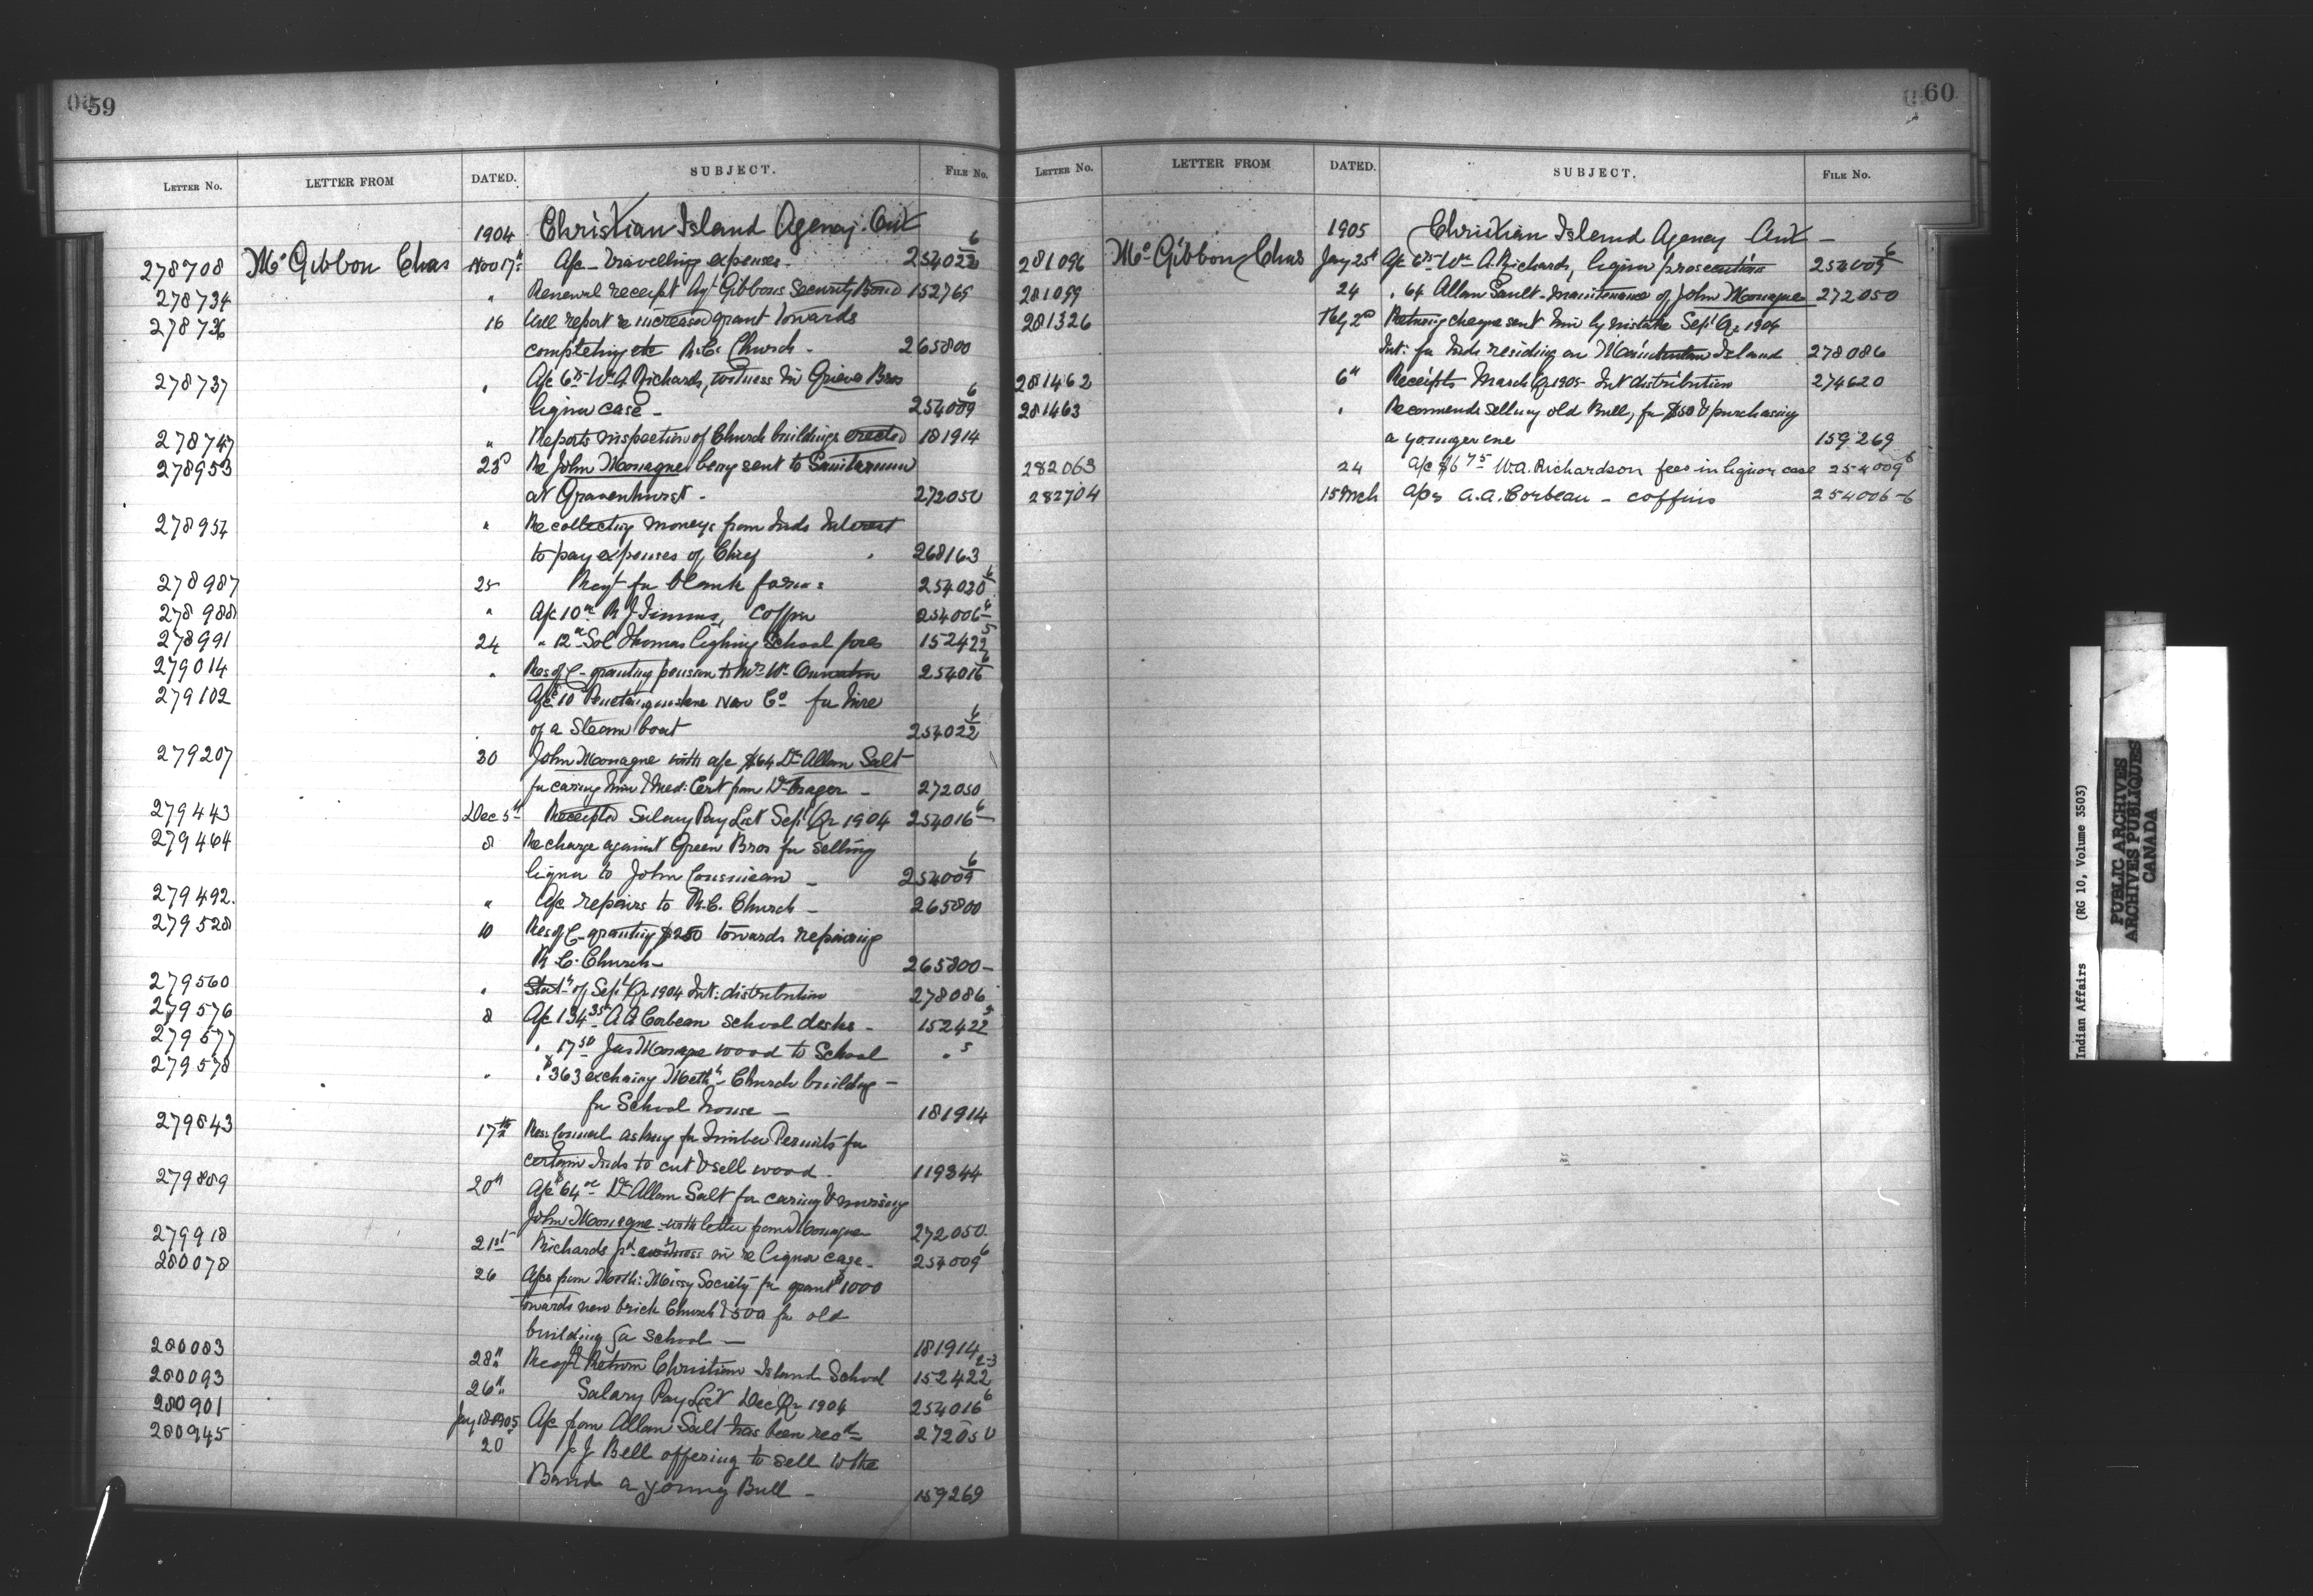 59
LETTER No. LETTER FROM DATED. SUBJECT. FILE No.
1904 Christian Island Agency. Ont
278708 Mc Gibbon Chas Nov 17th A/c - Travelling expenses - 254022-6
278734 " Renewal receipt Agt Gibbons Security Bond 152769
278736 16 Will report re increased grant towards
completing etc R.C. Church - 265800
278737 " A/c 6.75 Wm A. Richards, witness in Grieve Bros
liquor case - 254009-6
278747 " Reports inspection of Church buildings erected 181914
278953 23d Re John Monague being sent to Sanitarium
at Gravenhurst - 272050
278954 " Re collecting moneys from Inds Interest
to pay expenses of Chief 268163
278987 25 Reqt for blank forms 254020-6
278988 " A/c 10.00 R J Timmins, Coffin 254006-6
278991 24 " 12.00 Sol Thomas lighting School fires 152422-5
279014 " Res of C - granting pension to Mrs Wm 254016-6
279102 A/c $10 Penetanguishene Nav Co for hire
of a Steam boat 254022-6
279207 30 John Monague with a/c $64 Dr Allan Salt
for caring him & Med: Cert from Dr 272050
279443 Dec 5th Receipted Salary Pay List Sept Qr 1904 254016-6
279464 8 Re charge against Green Bros for selling
liquor to John - 254009-6
279492. " A/c repairs to R.C. Church - 265800
279528 10 Res of C - granting $250 towards repairing
R. C. Church - 265800 -
279560 " Statt of Sept Qr 1904 Int: distribution 278086
279576 8 A/c 134.35 A A Corbeau school desks - 152422-5
279577 " 17.50 Jas Monague wood to School " 5
279578 " " $363 exchaing Meth: Church building -
for School house - 181914
279843 17th Res: Council asking for Timber Permits for
certain Inds to cut & sell wood - 119344
279889 20th A/c $64.00 Dr Allan Salt for caring & nursing
John Monague - with letter from Monague 272050.
279918 21st Richards pd witness in re liquor case - 254009-6
280078 26 A/cs from Meth: Missy Society for grant $1000
towards new brick Church & 500 for old
building for school - 181914
280083 28th Recpt Return Christian Island School 152422 2-3
280093 26th Salary Pay List Dec Qr 1904 254016-6
280901 Jany 18 1905 A/c from Allan Salt has been recd 272050
280945 20 J Bell offering to sell to the
Band a young Bull - 159269
60
LETTER No. LETTER FROM DATED. SUBJECT. FILE No.
1905 Christian Island Agency Ont -
281096 Mc Gibbon Chas Jany 25th A/c 6.75 Wm A. Richards, liquor prosecutions 254009-6
281099 24 " 64 Allan Sault - maintenance of John Monague 272050
281326 Feby 2d Returng cheque sent him by mistake Sept Qr 1904
Int: for Inds residing on Manitoulin Island 278086
281462 6th Receipts March Qr 1905 - Int distribution 274620
281463 " Recommends selling old Bull, for $50 & purchasing
a younger one 159269
282063 24 a/c $6.75 W.A. Richardson fees in liquor case 254009-6
282704 15 Mch a/cs A.A. Corbeau - coffins 254006-6
Indian Affairs (RG 10, Volume 3503)
PUBLIC ARCHIVES
ARCHIVES PUBLIQUES
CANADA